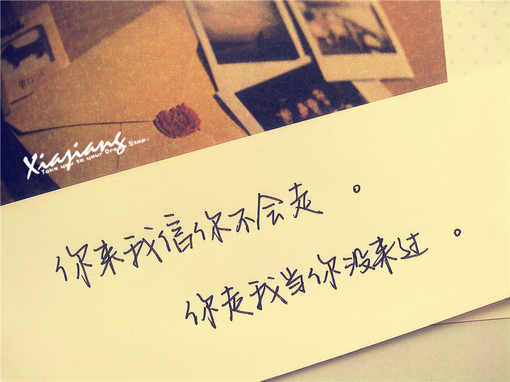 Xiajiang
Take you to your Drea Stop~
你来我信你不会走。
你走我当你没来过。